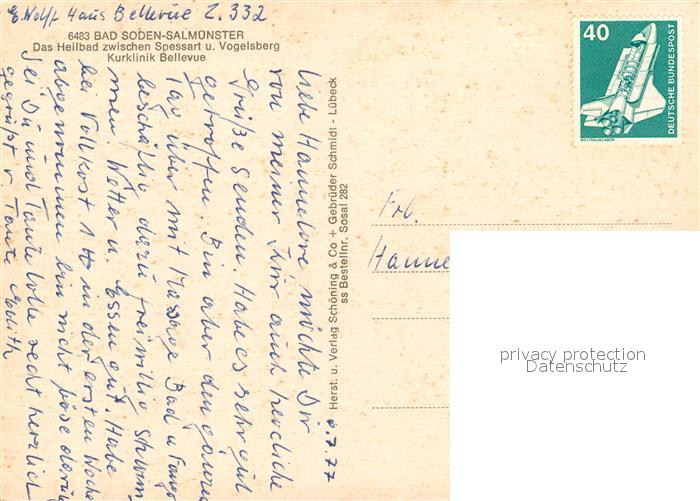 E. Wolff Haus Bellevue Z. 332
6483 BAD SODEN-SALMÜNSTER
Das Heilbad zwischen Spessart u. Vogelsberg
Kurklinik Bellevue
9.7.77
Liebe Hannelore möchte Dir
von meiner Kur auch herzliche
Grüße senden. Habe es sehr gut
getroffen. Bin aber den ganzen
Tag über mit Massage Bad u Fango
beschäftig dazu freiwillig schwim-
men. Wetter u. Essen gut. Habe
bei Vollkost 1 in der ersten Woche
abgenommen bin nicht böse darüb
Sei Du und Tante Lotte recht herzlich
gegrüßt v Tante Edith
Herst. u. Verlag Schöning & Co + Gebrüder Schmidt - Lübeck
ss Bestellnr. Sosal 282
40
DEUTSCHE BUNDESPOST
WELTRAUMLABOR
Frl.
Hanne
privacy protection
Datenschutz